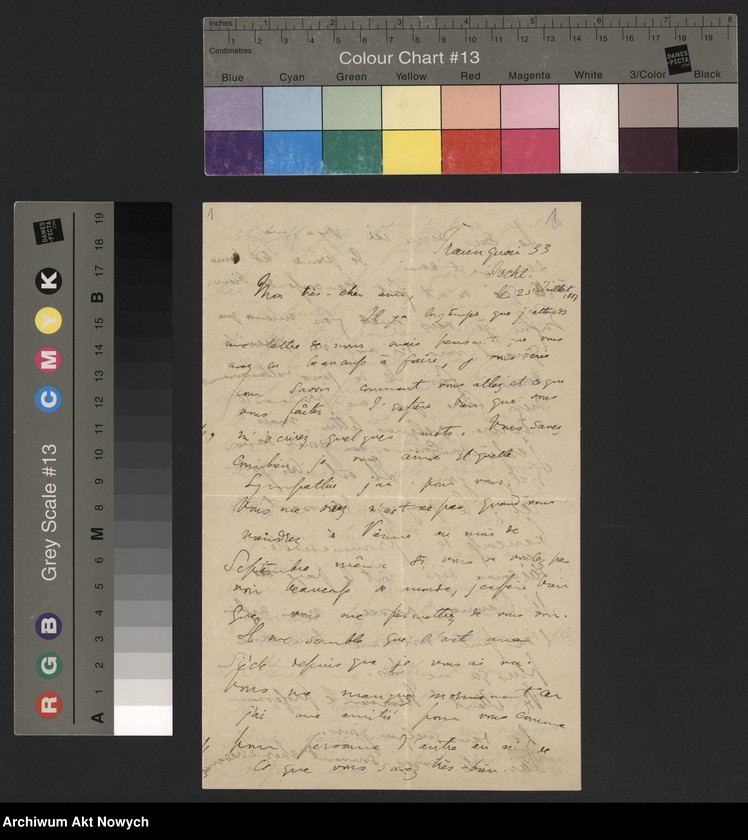 Inches 1 2 3 4 5 6 7 8
Centimetres 1 2 3 4 5 6 7 8 9 10 11 12 13 14 15 16 17 18 19
Colour Chart #13
DANES PICTA .COM
Blue Cyan Green Yellow Red Magenta White 3/Color Black
Grey Scale #13
R G B C M Y K
DANES PICTA .COM
A 1 2 3 4 5 6 M 8 9 10 11 12 13 14 15 B 17 18 19
1 1
33
Ischl.
Mon très-cher ami, le 25 Juillet
Il y a longtemps que j'attends
une lettre de vous mais pensant que vous
avez eu beaucoup à faire, je
pour savoir comment vous allez et ce que
vous faites. J'espère bien que vous
m'écrirez quelques mots. Vous savez
combien je vous aime et quelle
sympathie j'ai pour vous.
Vous me direz n'est ce pas quand vous
viendrez à Vienne au mois de
Septembre. même si vous ne voulez pas
voir beaucoup de monde, j'espère bien
que vous me permettrez de vous voir.
Il me semble que c'est un
Siècle depuis que je vous ai vu.
Vous me manquez car
j'ai une amitié pour vous comme
pour personne d'autre
ce que vous savez très-bien.
Archiwum Akt Nowych